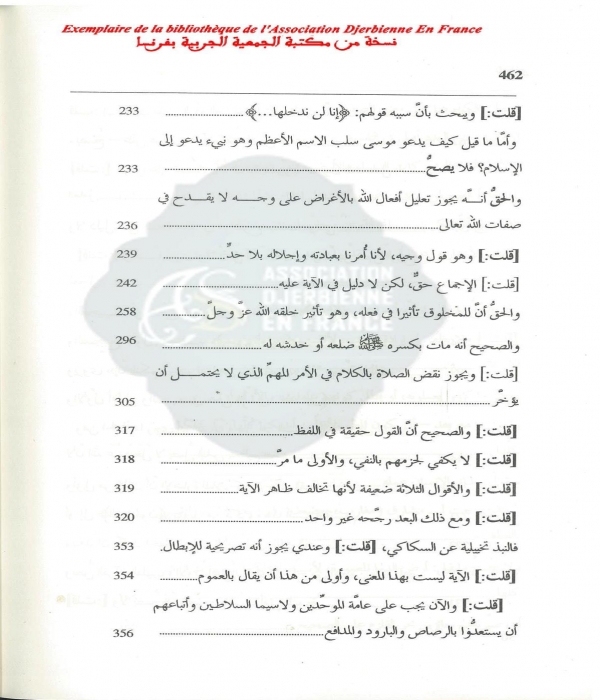 Exemplaire de la bibliothèque de l'Association Djerbienne En France
نسخة من مكتبة الجمعية الجربية بفرنسا
462
[قلت:] ويبحث بأنَّ سببه قولهم: ﴿إنا لن ندخلها...﴾ 233
وأمَّا ما قيل كيف يدعو موسى سلب الاسم الأعظم وهو نبيء يدعو إلى
الإسلام؟ فلا يصحُّ 233
والحقُّ أنَّه يجوز تعليل أفعال الله بالأغراض على وجه لا يقدح في
صفات الله تعالى 236
[قلت:] وهو قول وجيه، لأنا أُمرنا بعبادته وإجلاله بلا حدٍّ 239
[قلت:] الإجماع حقٌّ، لكن لا دليل في الآية عليه 242
والحقُّ أنَّ للمخلوق تأثيرا في فعله، وهو تأثير خلقه الله عزَّ وجلَّ 258
والصحيح أنه مات بكسره ﷺ ضلعه أو خدشه له 296
[قلت:] ويجوز نقض الصلاة بالكلام في الأمر المهمِّ الذي لا يحتمل أن
يؤخَّر 305
[قلت:] والصحيح أنَّ القول حقيقة في اللفظ 317
[قلت:] لا يكفي لجزمهم بالنفي، والأولى ما مرَّ 318
[قلت:] والأقوال الثلاثة ضعيفة لأنها تخالف ظاهر الآية 319
[قلت:] ومع ذلك البعد رجَّحه غير واحد 320
فالنبذ تخييلية عن السكاكي، [قلت:] وعندي يجوز أنه تصريحية للإبطال. 353
[قلت:] الآية ليست بهذا المعنى، وأولى من هذا أن يقال بالعموم 354
[قلت:] والآن يجب على عامَّة الموحِّدين ولاسيما السلاطين وأتباعهم
أن يستعدُّوا بالرصاص والبارود والمدافع 356
ASSOCIATION
DJERBIENNE
EN FRANCE